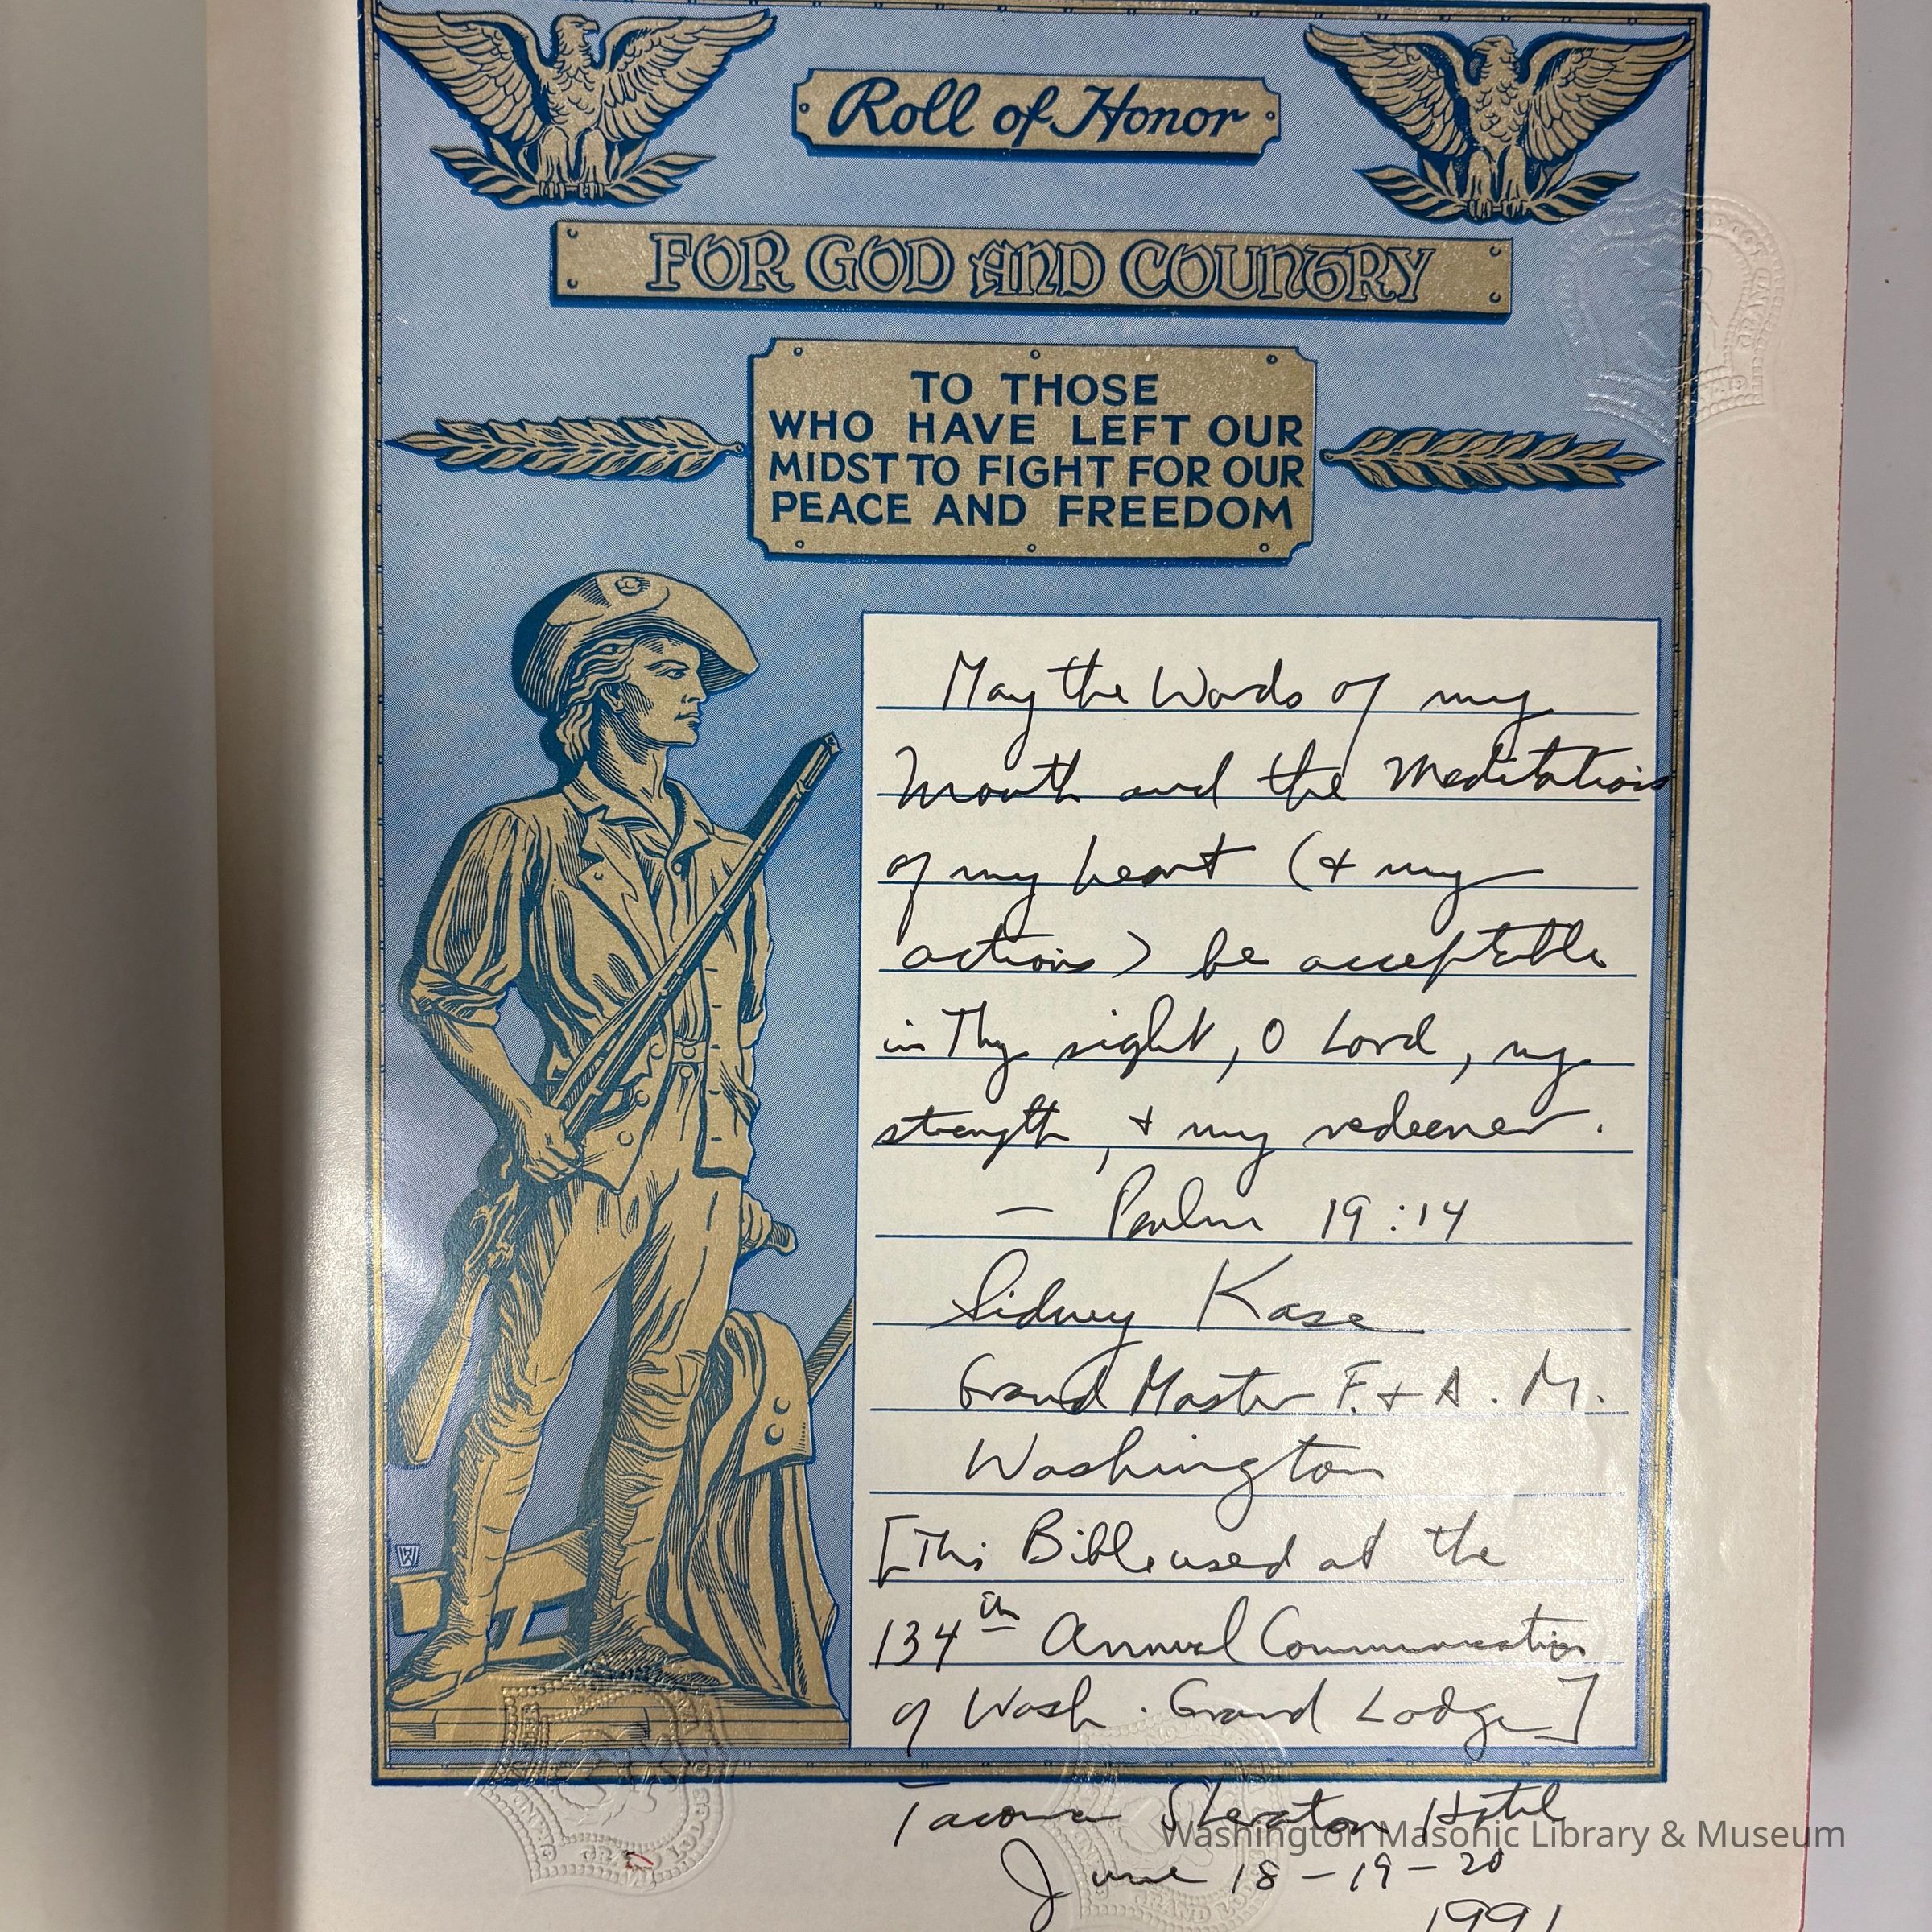 Roll of Honor
FOR GOD AND COUNTRY
TO THOSE
WHO HAVE LEFT OUR
MIDST TO FIGHT FOR OUR
PEACE AND FREEDOM
May the Words of my
Mouth and the Meditations
of my heart (& my
actions) be acceptable
in Thy sight, O Lord, my
strength, & my redeemer.
— Psalm 19:14
Sidney Kase
Grand Master F. & A. M.
Washington
[This Bible used at the
134th Annual Communication
of Wash. Grand Lodge]
Tacoma Sheraton Hotel
June 18-19-20
1991
Washington Masonic Library & Museum